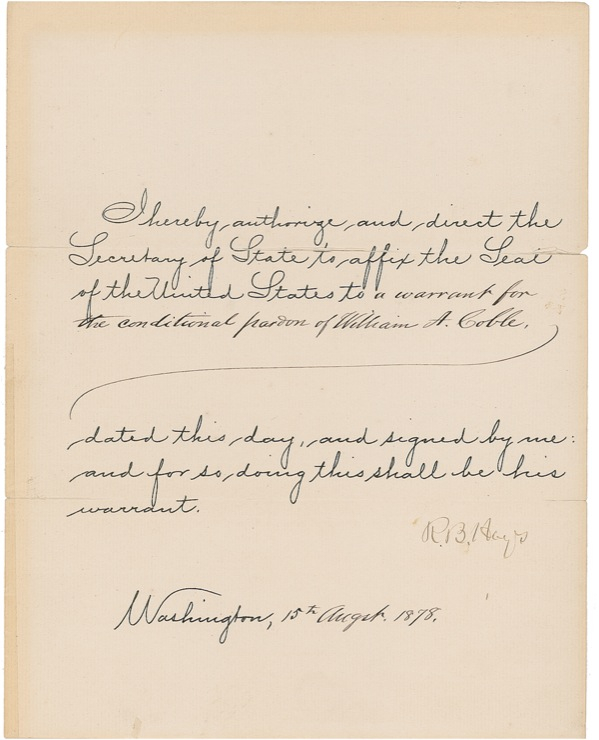 I hereby authorize and direct the
Secretary of State to affix the Seal
of the United States to a warrant for
the conditional pardon of William A. Coble.
dated this day, and signed by me:
and for so doing this shall be his
warrant.
R.B. Hayes
Washington, 15th Augst. 1878.